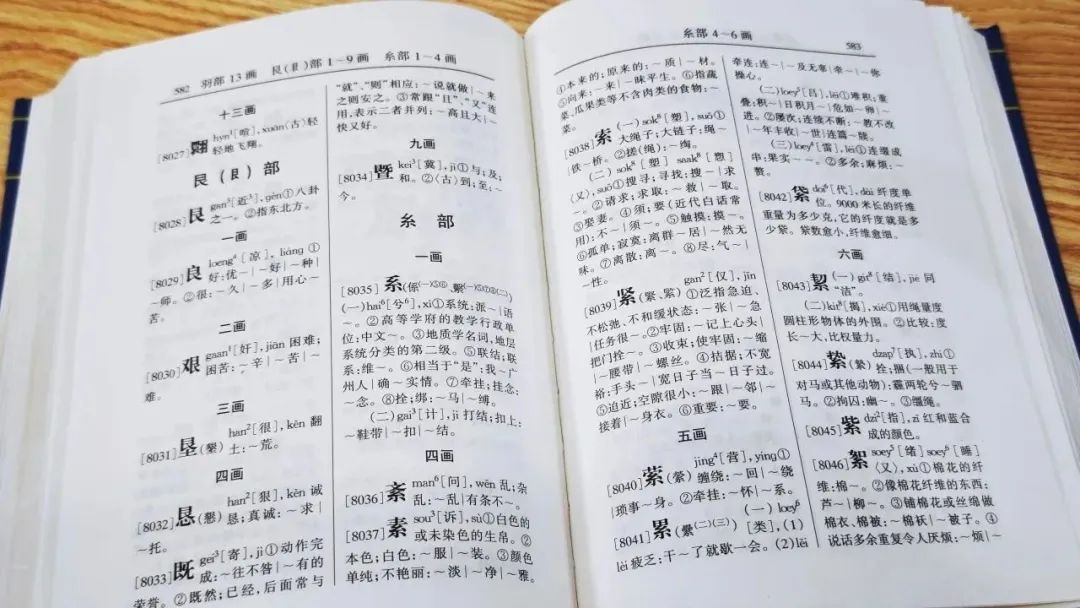 582 羽部 13 画 艮(⻏)部 1～9 画 糸部 1～4 画
十三画
[8027]翾 hyn¹[喧], xuān〈古〉轻
轻地飞翔。
艮(⻏)部
[8028]艮 gan³[近³], gèn①八卦
之一。②指东北方。
一画
[8029]良 loeng⁴[凉], liáng ①
好:优～|～好|～种|
～师。②很:～久|～多|用心～
苦。
二画
[8030]艰 gaan¹[奸], jiān 困难;
困苦:～辛|～苦|～
难。
三画
[8031]垦(墾) han²[很], kěn 翻
土:～荒。
四画
[8032]恳(懇) han²[狠], kěn 诚
恳;真诚:～求|
～托。
[8033]既 gei³[寄], jì①动作完
成:～往不咎|～有的
荣誉。②既然;已经,后面常与
“就”、“则”相应:～说就做|～来
之则安之。③常跟“且”、“又”连
用,表示二者并列:～高且大|～
快又好。
九画
[8034]暨 kei³[冀], jì①与;及;
和。②〈古〉到;至:～
今。
糸部
一画
[8035]系(係㈠⑤⑥、繫㈠⑤⑦⑧㈡)
(一)hai⁶[兮⁶], xì①系统:派～|语
～。②高等学府的教学行政单
位:中文～。③地质学名词,地层
系统分类的第二级。⑤联结;联
系:维～。⑥相当于“是”:我～广
州人|确～实情。⑦牵挂;挂念:
～念。⑧拴;绑:～马|～缚。
(二)gai³[计], jì 打结;扣上:
～鞋带|～扣|～结。
四画
[8036]紊 man⁶[问], wěn 乱;杂
乱:～乱|有条不～。
[8037]素 sou³[诉], sù①白色的
或未染色的生帛。②
本色;白色:～服|～装。③颜色
单纯;不艳丽:～淡|～净|～雅。
糸部 4～6 画 583
④本来的;原来的:～质|～材。
⑤向来:～来|～昧平生。⑥指蔬
菜、瓜果类等不含肉类的食物:～
菜。
[8038]索 (一)sok³[塑], suǒ①
大绳子;大链子:绳～|
铁～桥。②搓(绳):～绹。
(二)sok³[塑] saak³[恖]
〈又〉, suǒ①搜寻;寻找:搜～|求
～。②请求;求取:～救|～取。
③娶妻。④须;要(近代白话常
用):不～|须～。⑤触摸:摸～。
⑥孤单;寂寞:离群～居|～然无
味。⑦离散:离～。⑧尽:气～|
～性。
[8039]紧(緊、紧) gan²[仅], jǐn
①泛指急迫、
不松弛、不和缓状态:～张|～急
|任务很～。②牢固:～记上心头|
把门拴～。③收束;使牢固:～缩
|～腰带|～螺丝。④拮据;不宽
裕:手头～|宽日子当～日子过。
⑤迫近;空隙很小:～跟|～邻|～
接着|～身衣。⑥重要:～要。
五画
[8040]萦(縈) jing⁴[营], yíng①
缠绕:～回|～绕
|琐事～身。②牵挂:～怀|～系。
[8041]累(纍㈡㈢) (一)loey⁶
[类],(1)
lèi 疲乏:干～了就歇一会。(2)lěi
牵连:连～|～及无辜|牵～|～你
操心。
(二)loey⁵[吕], lěi①堆积;重
叠:积～|日积月～|危如～卵|～
进。②屡次;连续不断:～教不改
|～年丰收|～世|连篇～牍。
(三)loey⁴[雷], léi①连缀成
串:果实～～。②多余;麻烦:～
赘。
[8042]紫 doi⁶[代], dài 纤度单
位。9000 米长的纤维
重量为多少克,它的纤度就是多
少袋。袋数愈小,纤维愈细。
六画
[8043]絜 (一)git³[结], jié 同
“洁”。
(二)kit³[揭], xié①用绳量度
圆柱形物体的外围。②比较;度
长～大,比权量力。
[8044]絷(縶) dzap⁷[执], zhí①
拴;捆(一般用于
对马或其他动物):霾两轮兮～驷
马。②拘囚:幽～。③缰绳。
[8045]紫 dzi²[指], zǐ 红和蓝合
成的颜色。
[8046]絮 soey⁵[绪] soey⁶[睡]
〈又〉, xù①棉花的纤
维:棉～。②像棉花纤维的东西:
芦～|柳～。③铺棉花或丝绵做
棉衣、棉被:～棉袄|～被子。④
说话多余重复令人厌烦:～烦|～